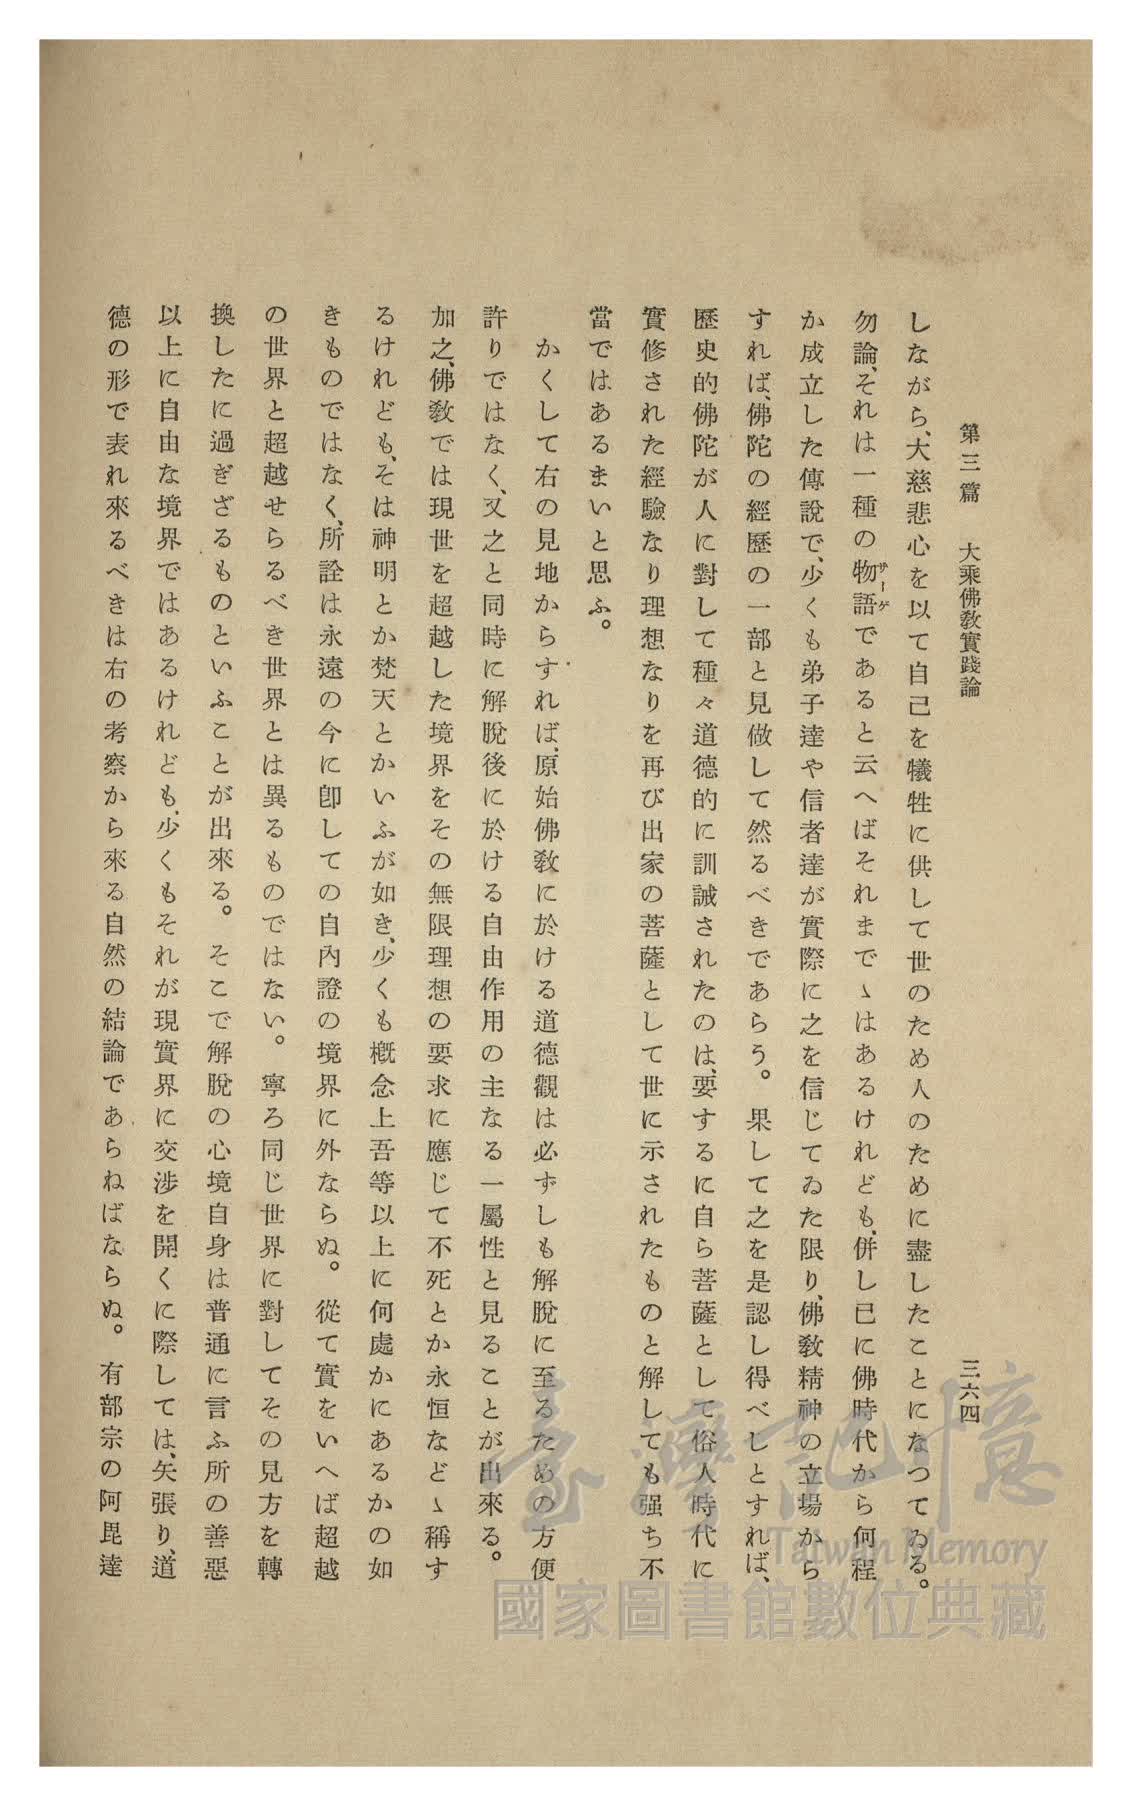 第三篇　大乘佛敎實踐論　三六四
しながら、大慈悲心を以て自己を犧牲に供して世のため人のために盡したことになつてゐる。
勿論、それは一種の物語であると云へばそれまでゝはあるけれども、併し已に佛時代から何程
サーゲ
か成立した傳說で、少くも弟子達や信者達が實際に之を信じてゐた限り、佛敎精神の立場から
すれば、佛陀の經歷の一部と見做して然るべきであらう。果して之を是認し得べしとすれば、
歷史的佛陀が人に對して種々道德的に訓誡されたのは、要するに自ら菩薩として俗人時代に
實修された經驗なり理想なりを再び出家の菩薩として世に示されたものと解しても强ち不
當ではあるまいと思ふ。
かくして右の見地からすれば、原始佛敎に於ける道德觀は必ずしも解脫に至るための方便
許りではなく、又之と同時に解脫後に於ける自由作用の主なる一屬性と見ることが出來る。
加之、佛敎では現世を超越した境界をその無限理想の要求に應じて不死とか永恒などゝ稱す
るけれども、そは神明とか梵天とかいふが如き、少くも槪念上吾等以上に何處かにあるかの如
きものではなく、所詮は永遠の今に卽しての自內證の境界に外ならぬ。從て實をいへば超越
の世界と超越せらるべき世界とは異るものではない。寧ろ同じ世界に對してその見方を轉
換したに過ぎざるものといふことが出來る。そこで解脫の心境自身は普通に言ふ所の善惡
以上に自由な境界ではあるけれども、少くもそれが現實界に交涉を開くに際しては、矢張り、道
德の形で表れ來るべきは右の考察から來る自然の結論であらねばならぬ。有部宗の阿毘達
臺灣記憶
Taiwan Memory
國家圖書館數位典藏